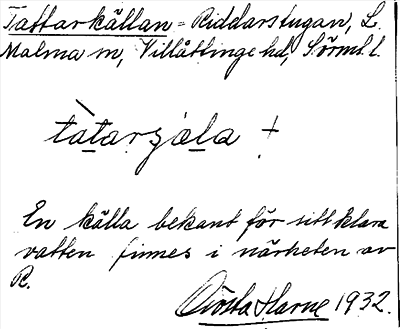 Tattarkällan = Riddarstugan, L.
Malma sn, Villåttinge hd, Sörml. l.
tàtarʒäla +
En källa bekant för sitt klara
vatten finnes i närheten av
R.
Gösta Harne 1932.